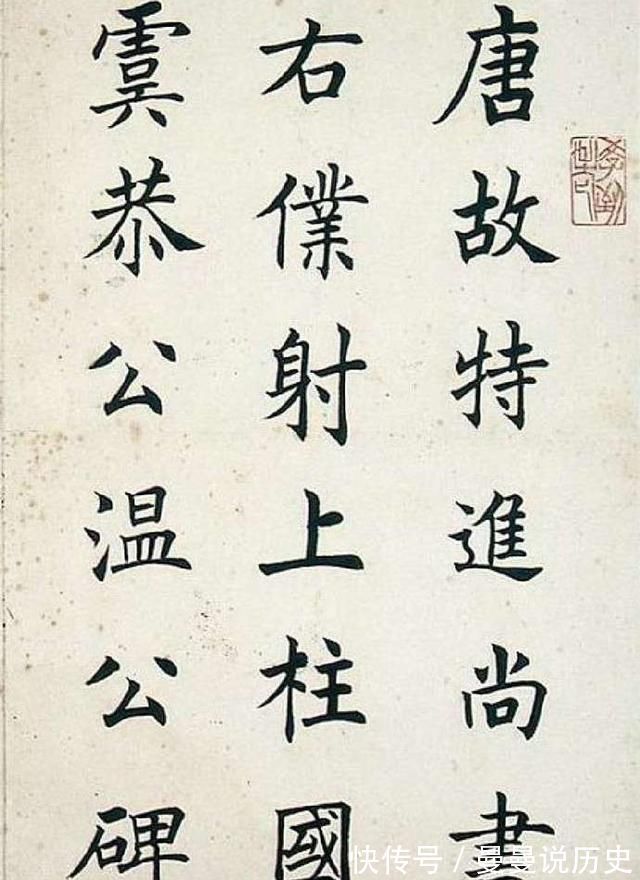 唐故特進尚書
右僕射上柱國
虞恭公温公碑
快传号/曼曼说历史